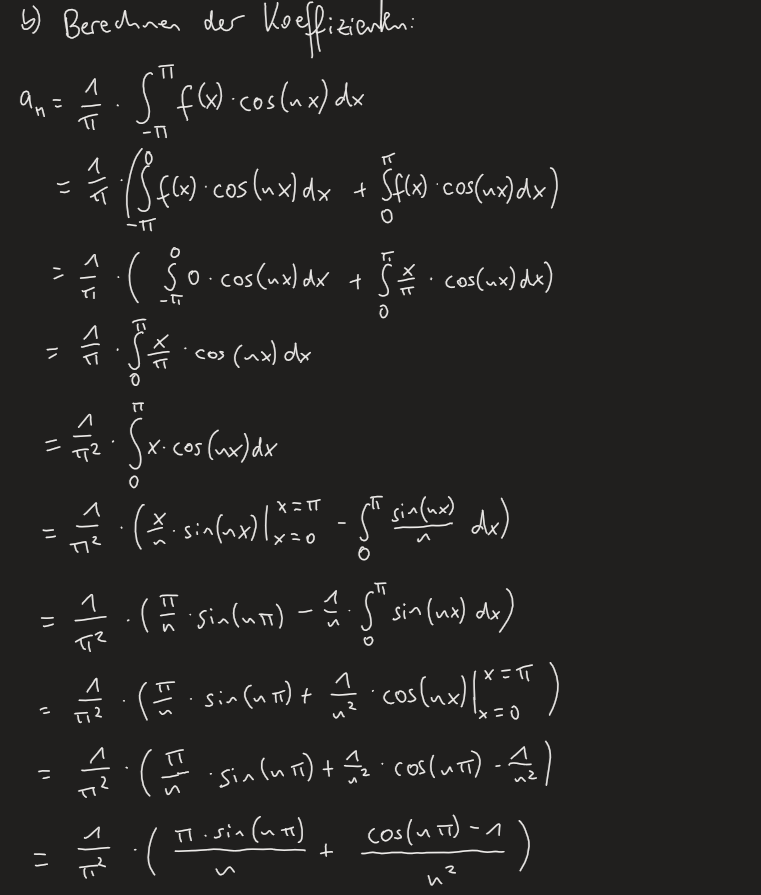 b) Berechnen der Koeffizienten:
a_n = 1/π · ∫_{-π}^{π} f(x) · cos(nx) dx
= 1/π · (∫_{-π}^{0} f(x) · cos(nx) dx + ∫_{0}^{π} f(x) · cos(nx) dx)
= 1/π · (∫_{-π}^{0} 0 · cos(nx) dx + ∫_{0}^{π} x/π · cos(nx) dx)
= 1/π · ∫_{0}^{π} x/π · cos(nx) dx
= 1/π² · ∫_{0}^{π} x · cos(nx) dx
= 1/π² · (x/n · sin(nx) |_{x=0}^{x=π} - ∫_{0}^{π} sin(nx)/n dx)
= 1/π² · (π/n · sin(nπ) - 1/n · ∫_{0}^{π} sin(nx) dx)
= 1/π² · (π/n · sin(nπ) + 1/n² · cos(nx) |_{x=0}^{x=π})
= 1/π² · (π/n · sin(nπ) + 1/n² · cos(nπ) - 1/n²)
= 1/π² · (π · sin(nπ)/n + (cos(nπ) - 1)/n²)